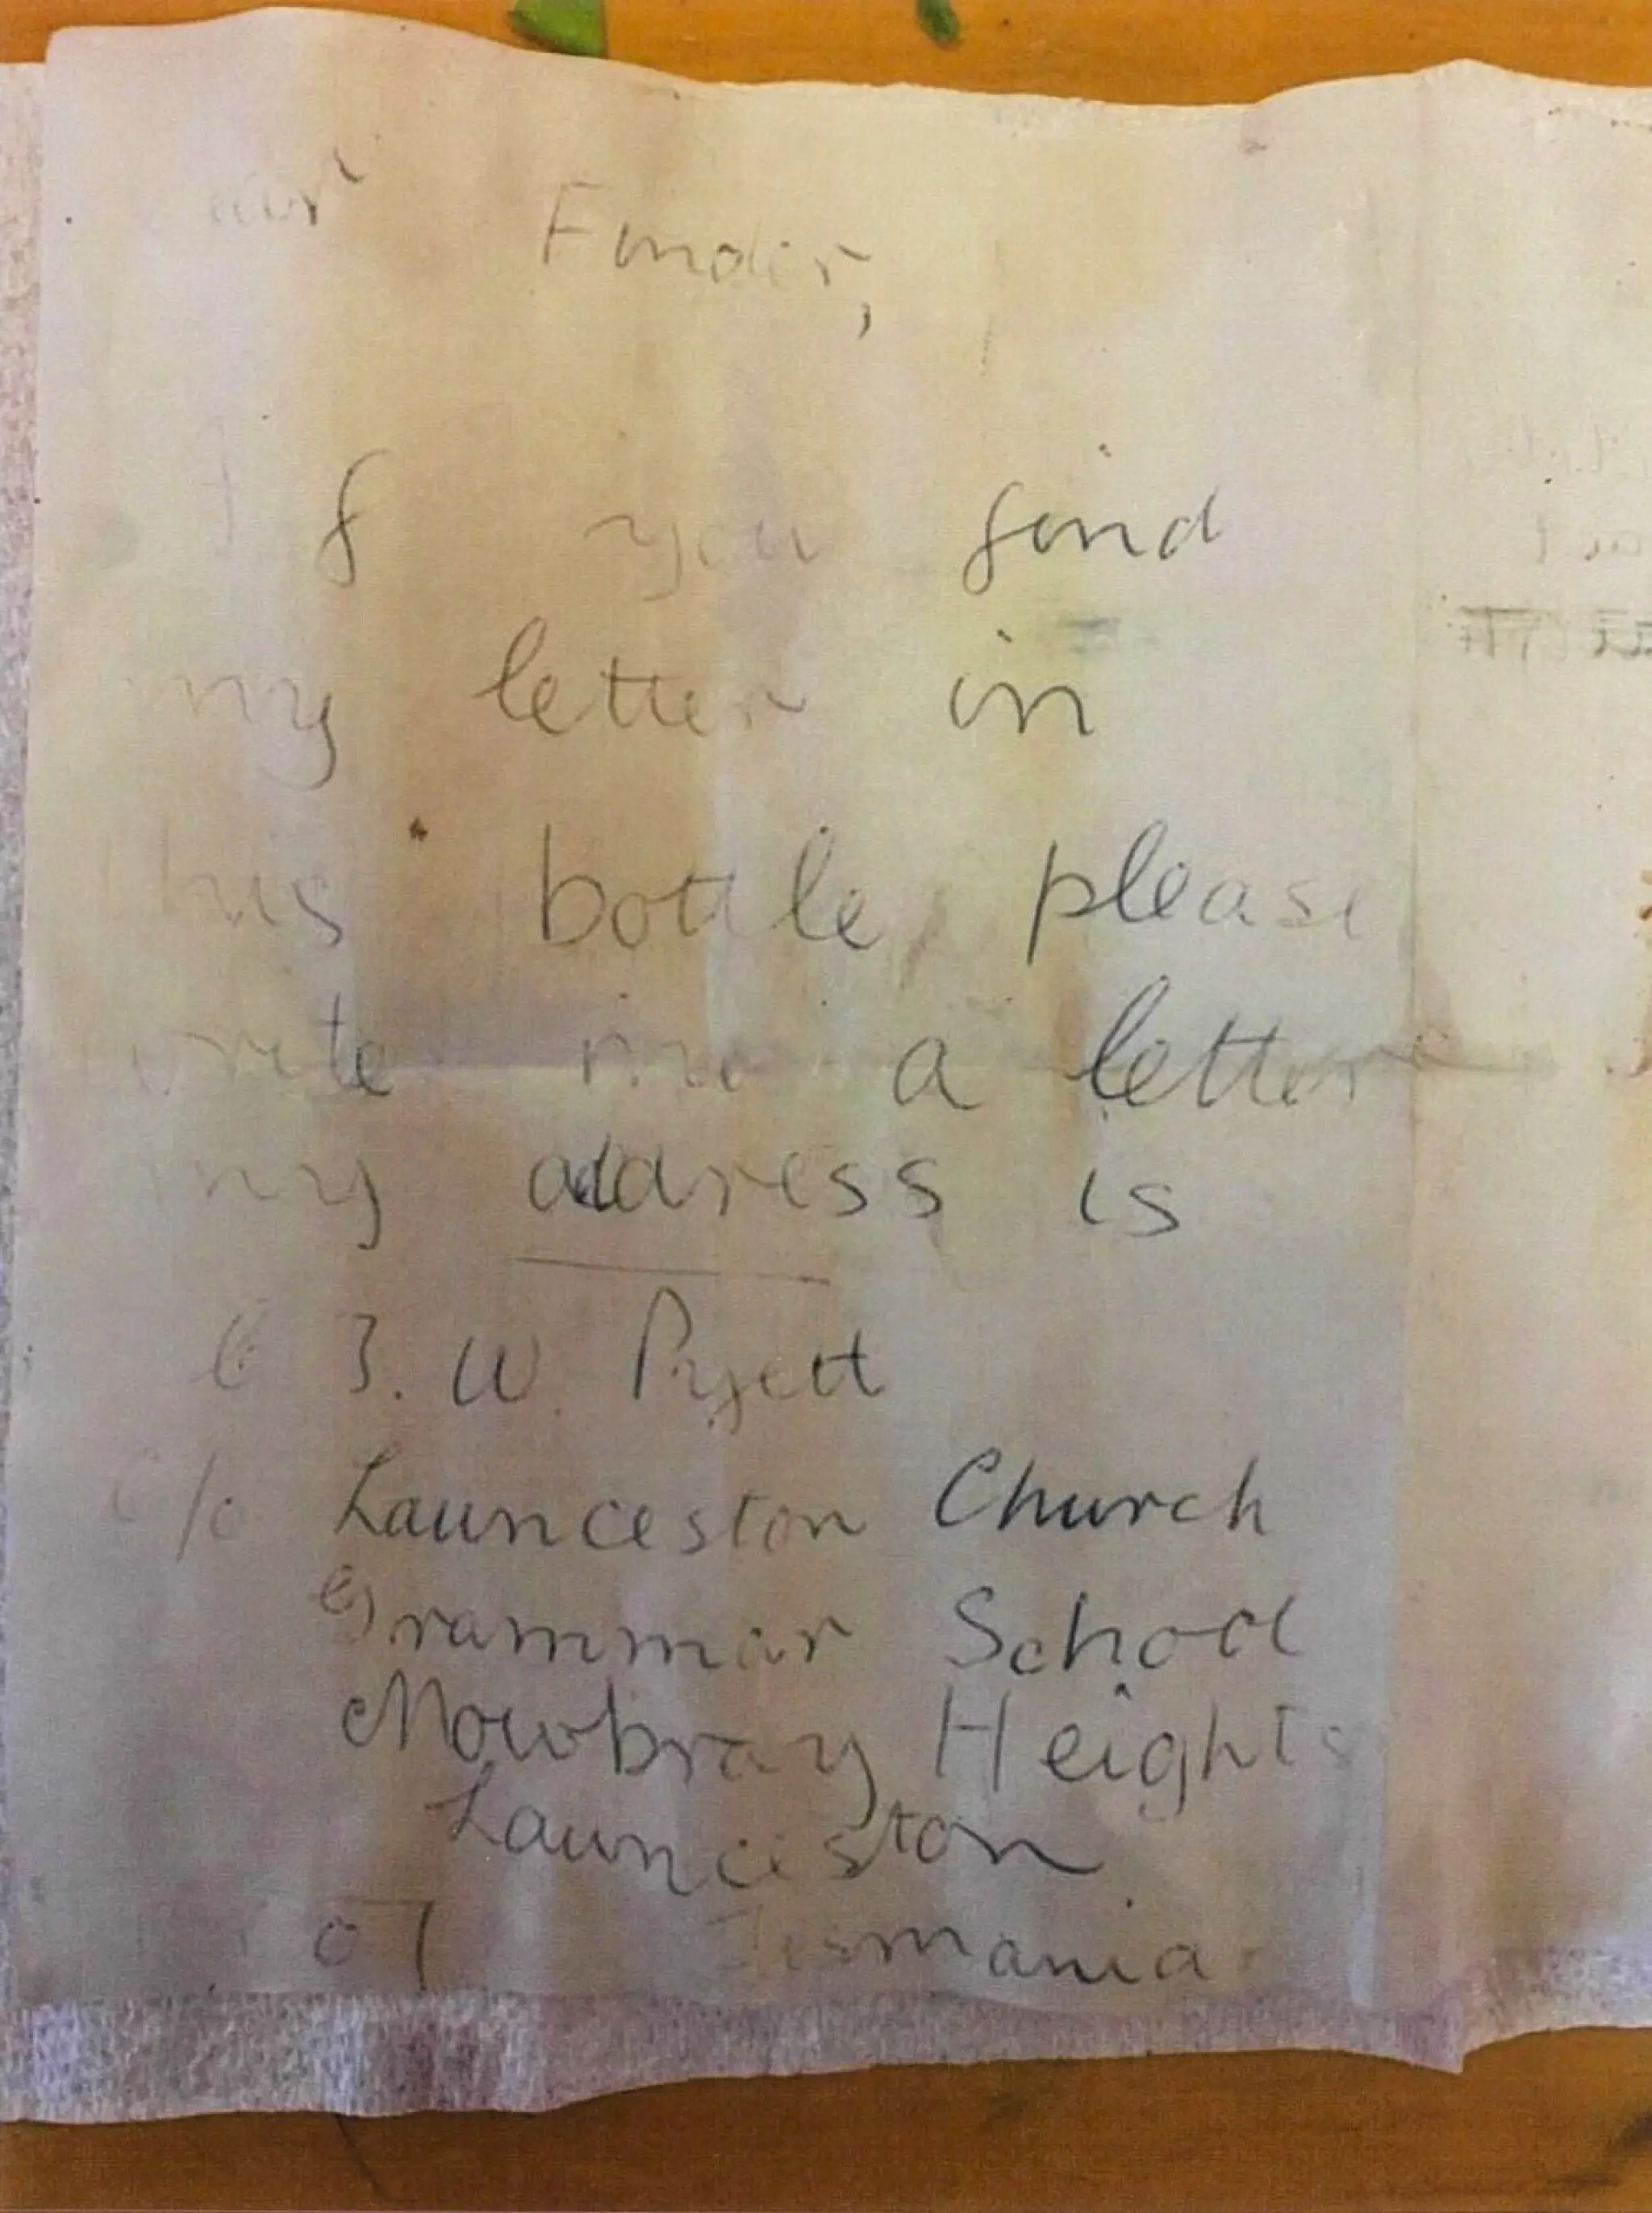 Dear Finder,
If you find
my letter in
this bottle, please
write me a letter
my address is
W.
c/o Launceston Church
Grammar School
Mowbray Heights
Launceston
Tasmania